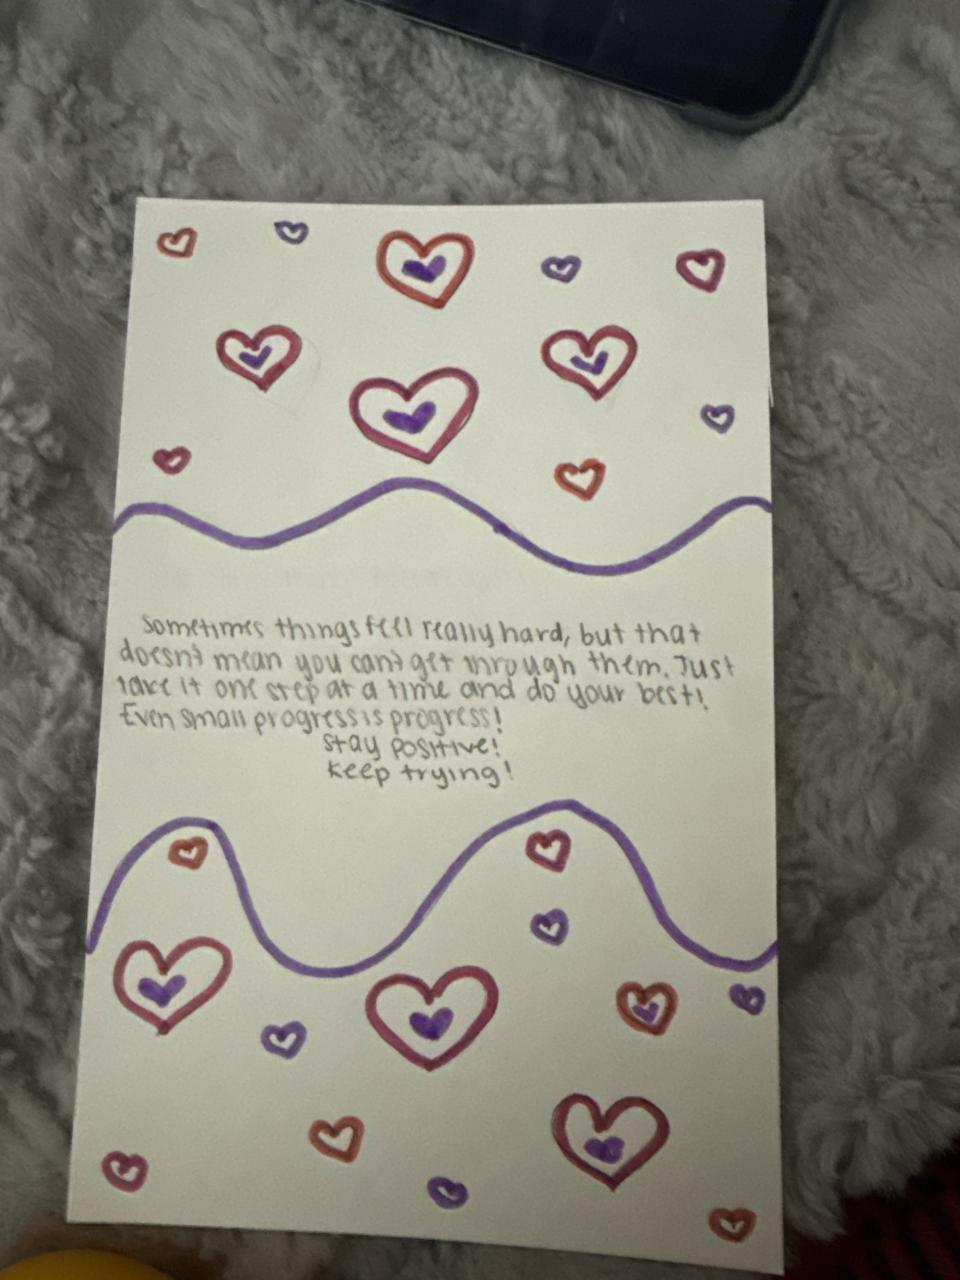 Sometimes things feel really hard, but that
doesn't mean you can't get through them. Just
take it one step at a time and do your best!
Even small progress is progress!
Stay positive!
Keep trying!